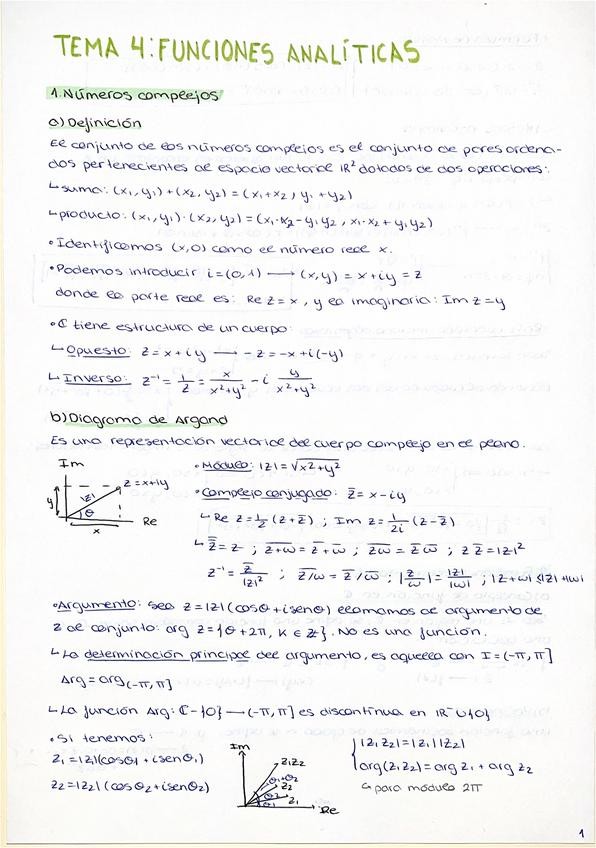 TEMA 4: FUNCIONES ANALÍTICAS
1. Números complejos
a) Definición
El conjunto de los números complejos es el conjunto de pares ordena-
dos pertenecientes al espacio vectorial ℝ² dotados de dos operaciones:
↳ suma: (x₁, y₁) + (x₂, y₂) = (x₁+x₂, y₁+y₂)
↳ producto: (x₁, y₁) · (x₂, y₂) = (x₁·x₂ - y₁y₂, x₁·x₂ + y₁y₂)
• Identificamos (x,0) como el número real x.
• Podemos introducir i = (0,1) ⟶ (x,y) = x+iy = z
donde la parte real es: Re z = x, y la imaginaria: Im z = y
• ℂ tiene estructura de un cuerpo:
↳ Opuesto: z = x+iy ⟶ -z = -x+i(-y)
↳ Inverso: z⁻¹ = 1/z = x/(x²+y²) - i y/(x²+y²)
b) Diagrama de Argand
Es una representación vectorial del cuerpo complejo en el plano.
Im
z = x+iy
|z|
y
θ
x
Re
• Módulo: |z| = √(x²+y²)
• Complejo conjugado: z̅ = x-iy
↳ Re z = 1/2 (z+z̅) ; Im z = 1/2i (z-z̅)
↳ z̿ = z ; \overline{z+ω} = z̅+ω̅ ; \overline{zω} = z̅ ω̅ ; z z̅ = |z|²
z⁻¹ = z̅/|z|² ; \overline{z/ω} = z̅/ω̅ ; |z/ω| = |z|/|ω| ; |z+ω| ≤ |z|+|ω|
• Argumento: sea z = |z|(cosθ + i senθ) llamamos al argumento de
z al conjunto: arg z = {θ + 2π, K ∈ ℤ}. No es una función.
↳ La determinación principal del argumento, es aquella con I = (-π, π]
Arg = arg(-π, π]
↳ La función Arg: ℂ-{0} ⟶ (-π, π] es discontinua en ℝ⁻∪{0}
• Si tenemos:
z₁ = |z|(cosθ₁ + i senθ₁)
z₂ = |z|(cosθ₂ + i senθ₂)
Im
z₁z₂
θ₁+θ₂
z₂
θ₂
z₁
θ₁
Re
|z₁ z₂| = |z₁||z₂|
arg(z₁z₂) = arg z₁ + arg z₂
↳ para módulo 2π
1